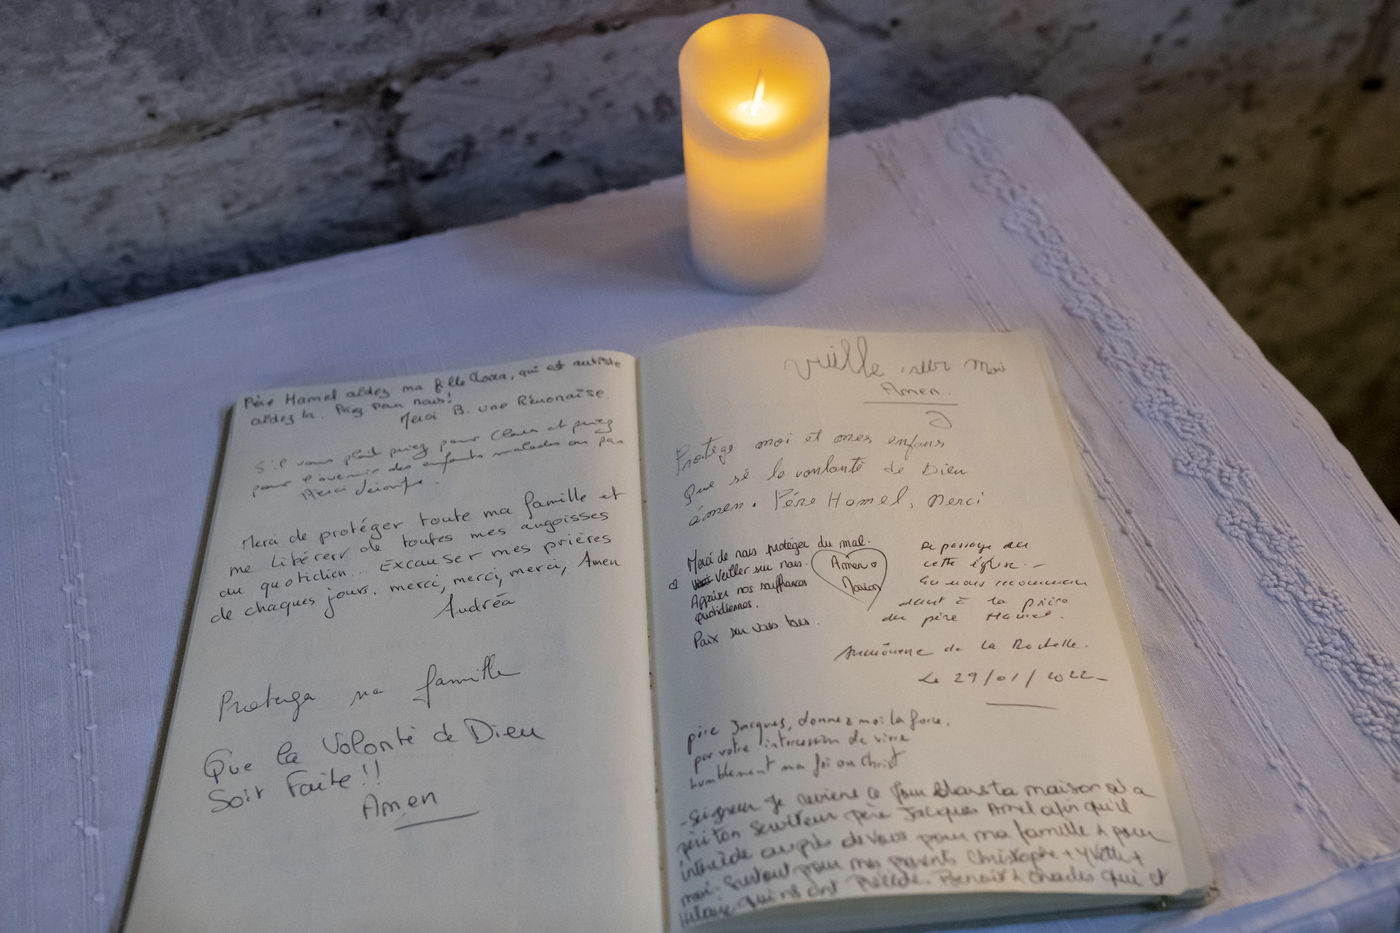 Père Hamel aidez ma fille Clara, qui est autiste
aidez la. Priez pour nous!
Merci B. une Réunionaise.
S'il vous plait priez pour Clara et priez
pour l'avenir des enfants malades ou pas
Merci
Merci de protéger toute ma famille et
me libérer de toutes mes angoisses
du quotidien... Excauser mes prières
de chaques jours. merci, merci, merci, Amen
Andréa
Protega ma famille
Que la Volonté de Dieu
Soit Faite !!
Amen
veille sur moi
Amen.
Protège moi et mes enfans
Que sé la vonlonté de Dieu
amen. Père Hamel, Merci
Merci de nous protéger du mal.
Veiller sur nous.
Apaiser nos souffrances
quotidiennes.
Paix sur vous tous.
Amen
De passage dans
cette église.
à la prière
du père Hamel.
Aumônerie de La Rochelle.
Le 29/01/2022
père Jacques, donnez moi la force.
par votre intercession de vivre
humblement ma foi au Christ
- Seigneur je reviens ce jour dans ta maison où a
péri ton Serviteur père Jacques Amel afin qu'il
intercède auprès de Vous pour ma famille & pour
moi - Surtout pour mes parents Christophe + Yvette +
Hilaire qui m'ont Précédé. Benoit & Charles qui et